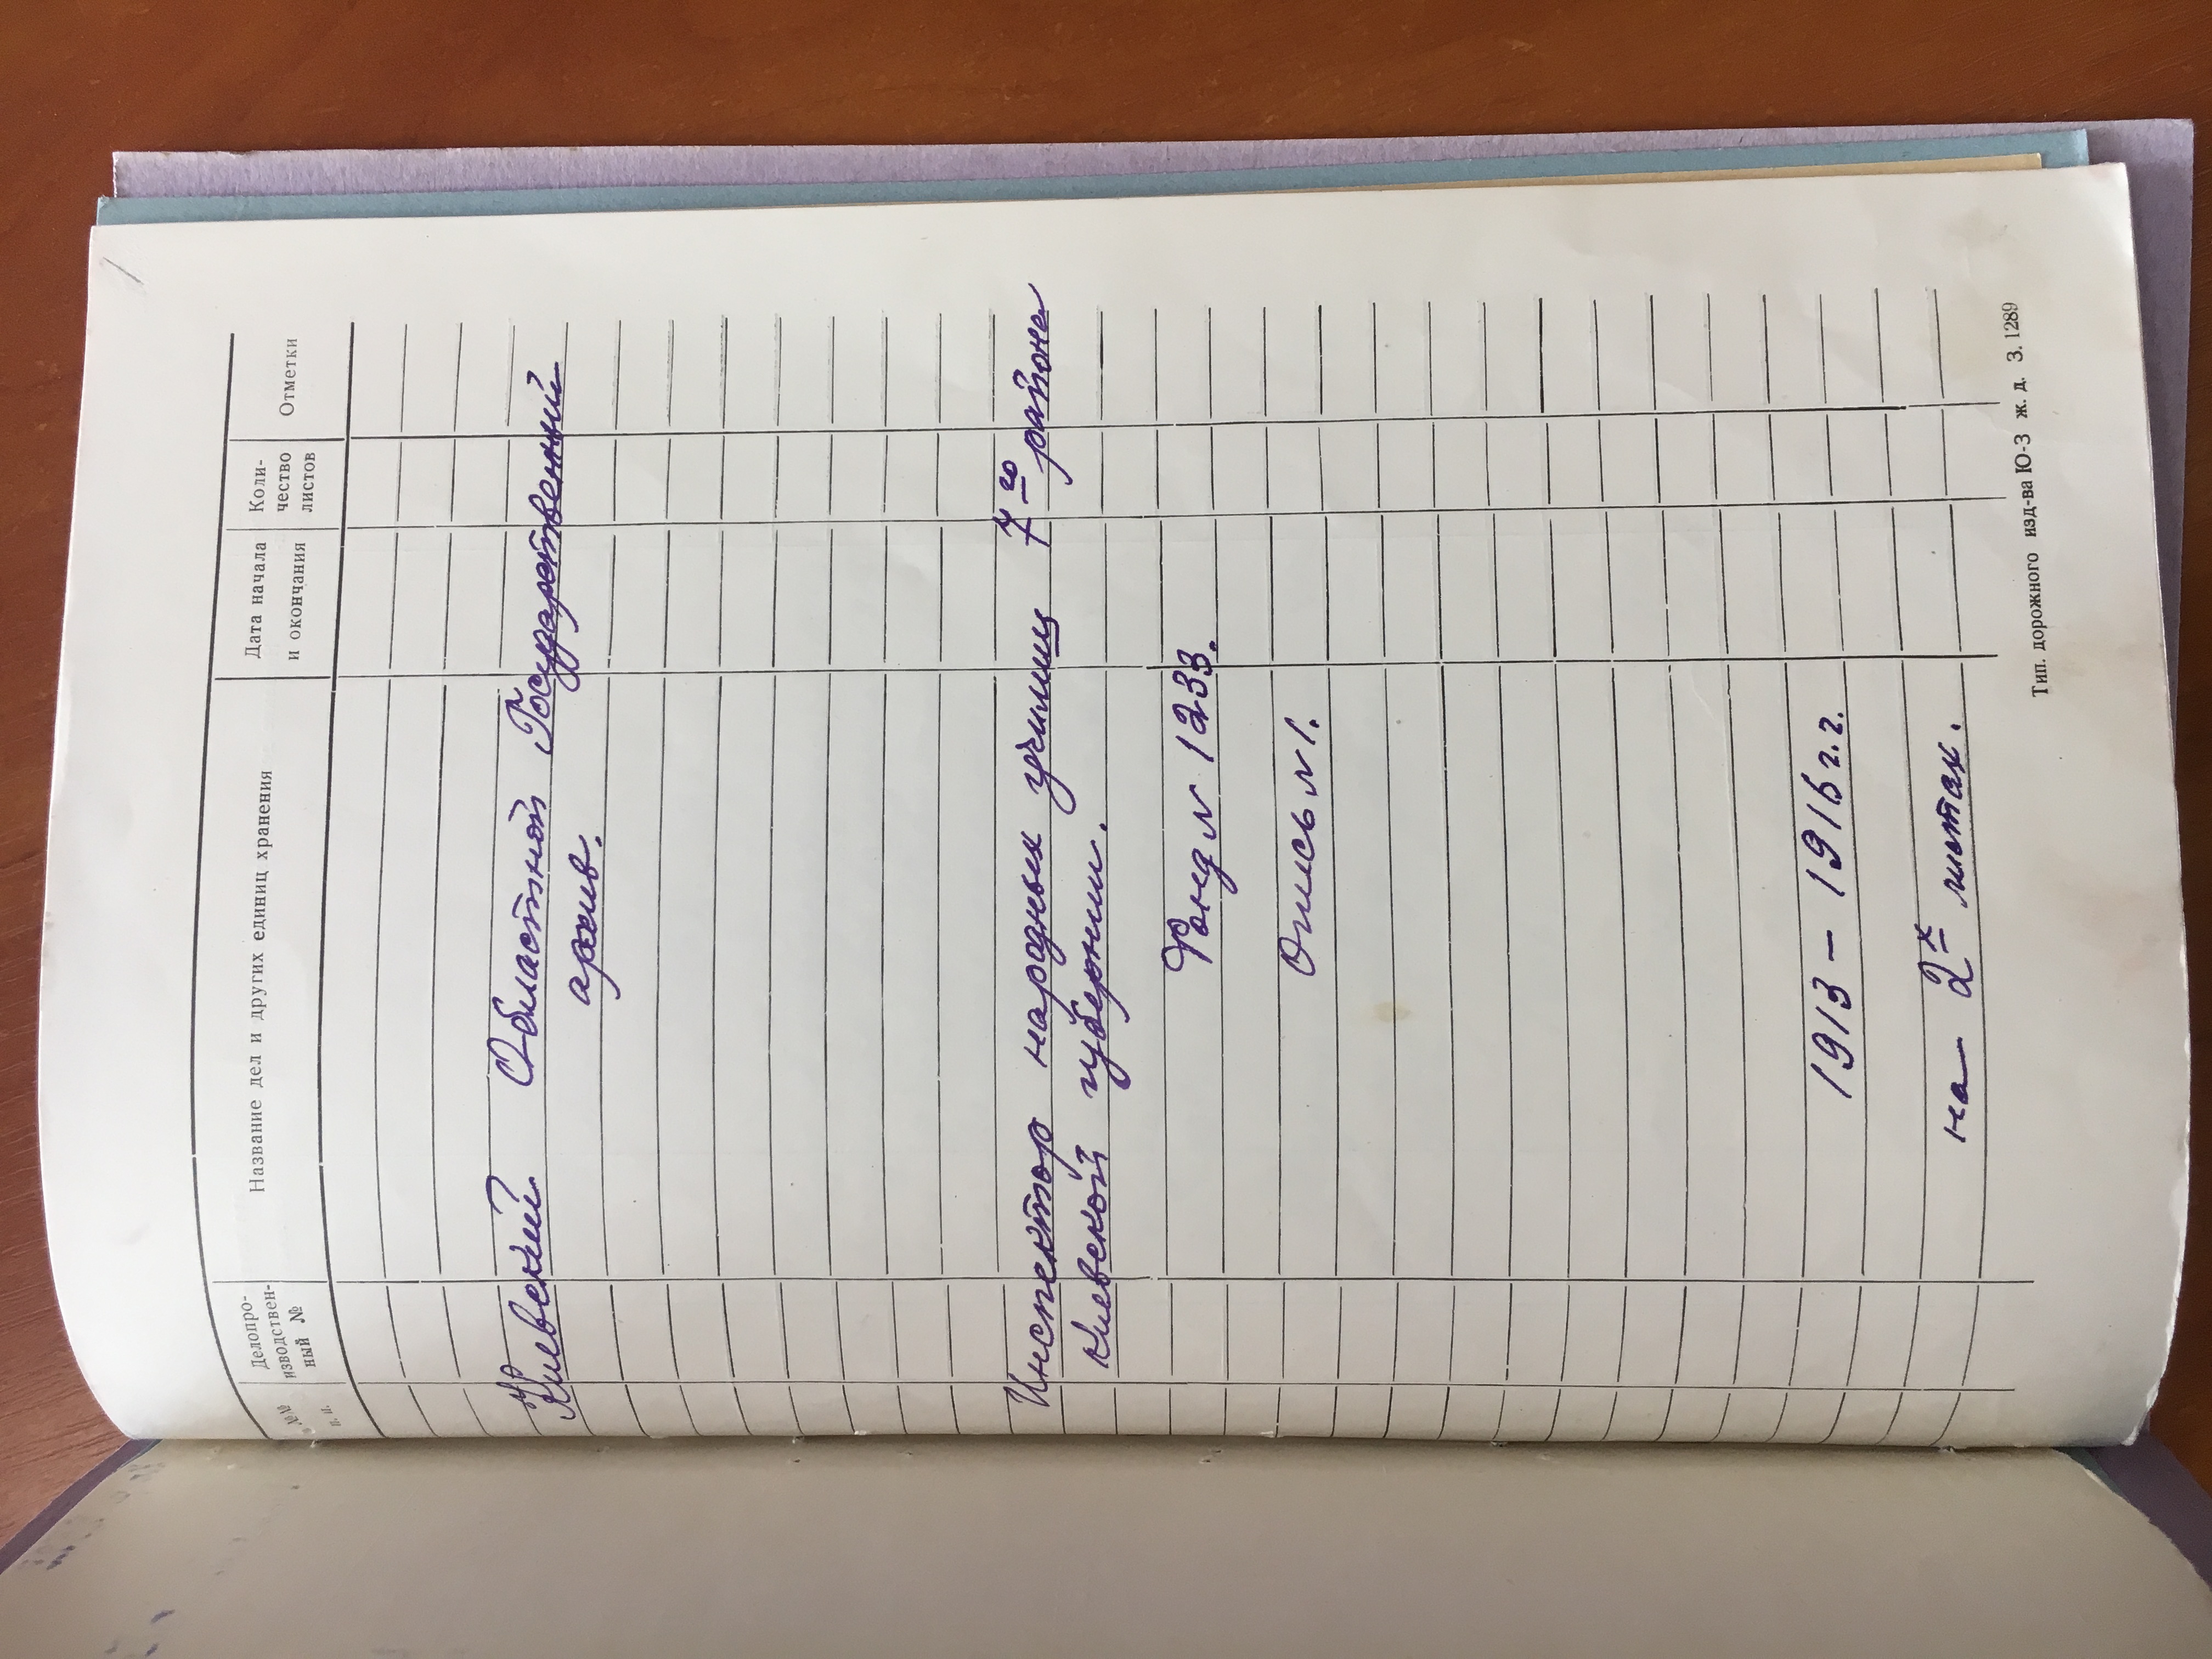 №№ п. п.
Делопро-
изводствен-
ный №
Название дел и других единиц хранения
Дата начала
и окончания
Коли-
чество
листов
Отметки
Киевский Областной Государственный
архив.
Инспектор народных училищ 7го района
Киевской губернии.
Фонд N 1233.
Опись N 1.
1913 – 1916 г.г.
на 2х листах.
Тип. дорожного изд-ва Ю-З ж. д. З. 1289